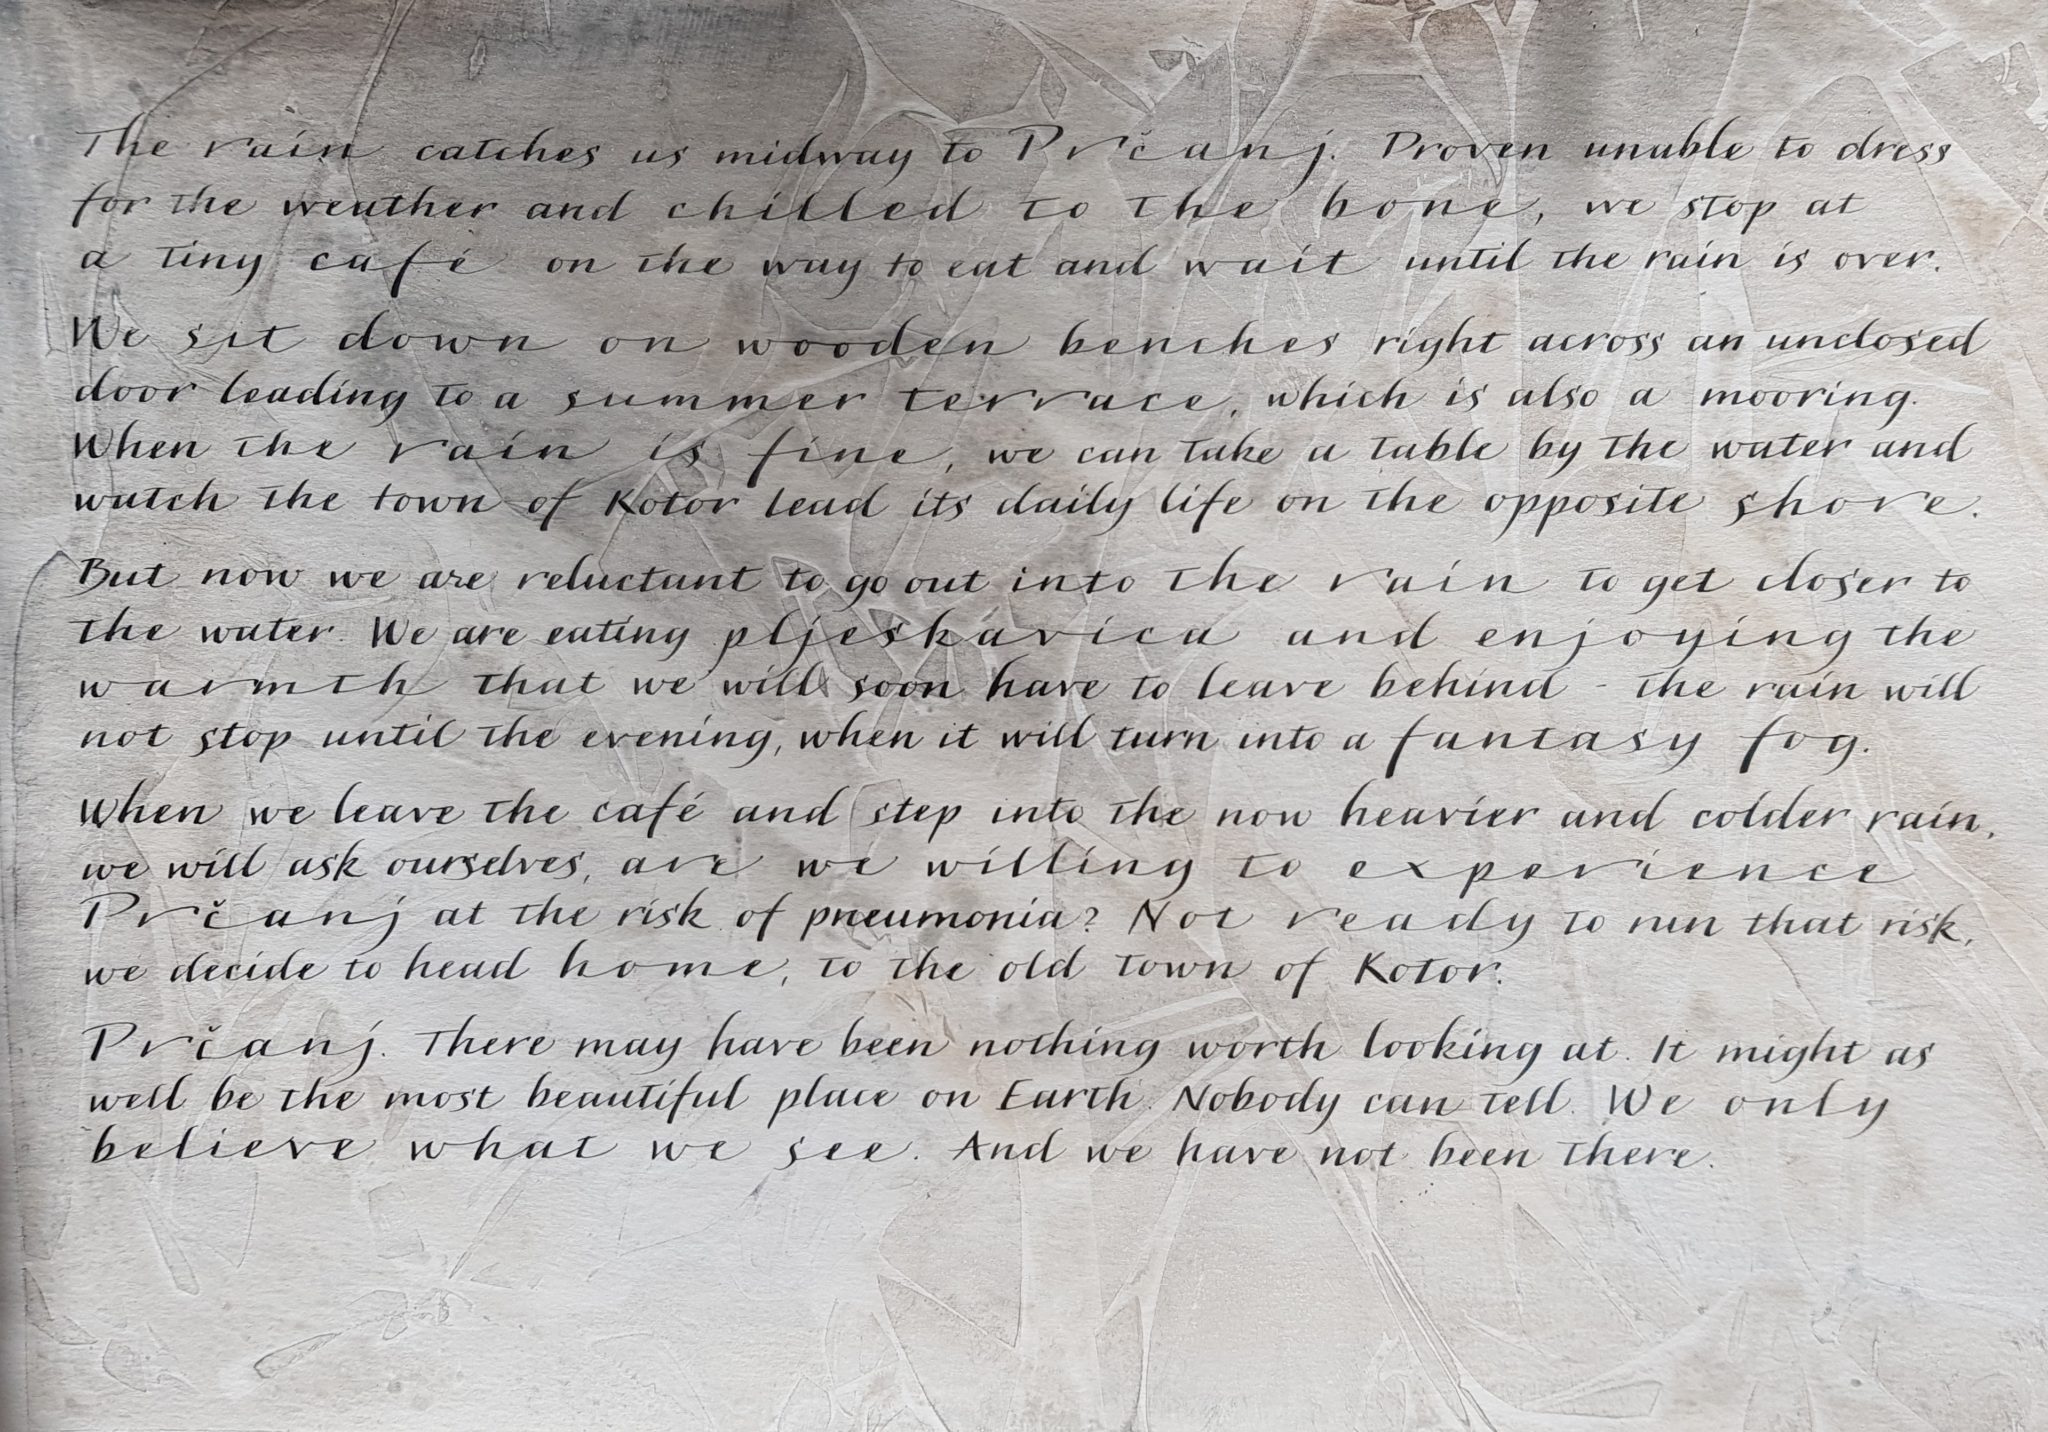 The rain catches us midway to Prčanj. Proven unable to dress
for the weather and chilled to the bone, we stop at
a tiny café on the way to eat and wait until the rain is over.
We sit down on wooden benches right across an unclosed
door leading to a summer terrace, which is also a mooring.
When the rain is fine, we can take a table by the water and
watch the town of Kotor lead its daily life on the opposite shore.
But now we are reluctant to go out into the rain to get closer to
the water. We are eating pljeskavica and enjoying the
warmth that we will soon have to leave behind - the rain will
not stop until the evening, when it will turn into a fantasy fog.
When we leave the café and step into the now heavier and colder rain,
we will ask ourselves, are we willing to experience
Prčanj at the risk of pneumonia? Not ready to run that risk,
we decide to head home, to the old town of Kotor.
Prčanj. There may have been nothing worth looking at. It might as
well be the most beautiful place on Earth. Nobody can tell. We only
believe what we see. And we have not been there.